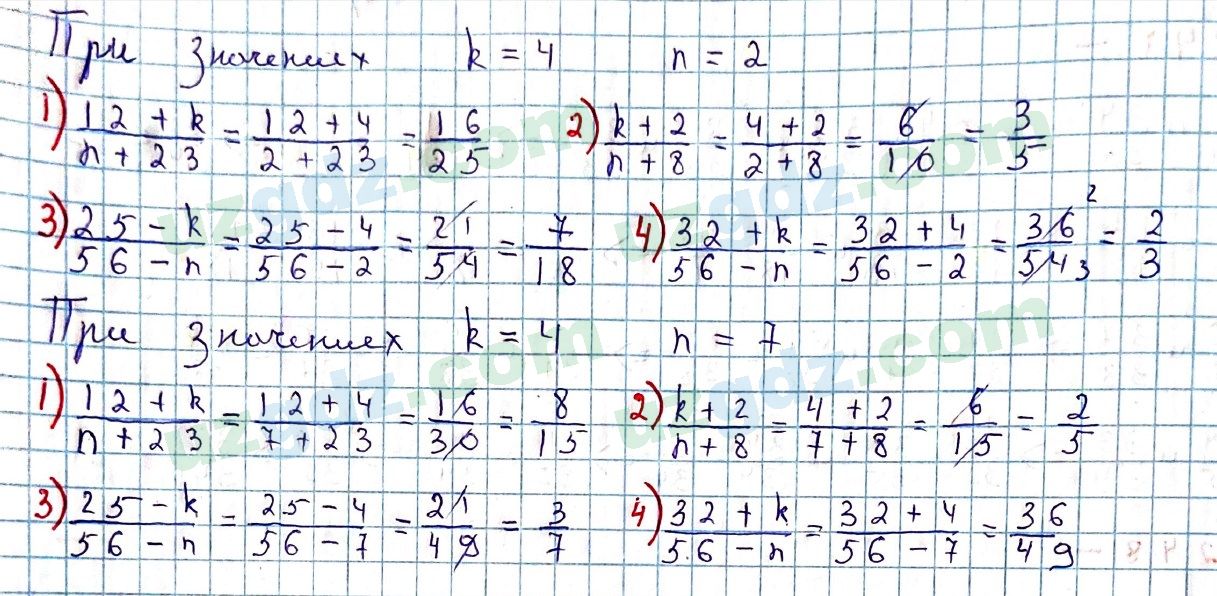 При значениях k = 4 n = 2
1) (12 + k)/(n + 23) = (12 + 4)/(2 + 23) = 16/25 2) (k + 2)/(n + 8) = (4 + 2)/(2 + 8) = 6/10 = 3/5
3) (25 - k)/(56 - n) = (25 - 4)/(56 - 2) = 21/54 = 7/18 4) (32 + k)/(56 - n) = (32 + 4)/(56 - 2) = 36 2/54 3 = 2/3
При значениях k = 4 n = 7
1) (12 + k)/(n + 23) = (12 + 4)/(7 + 23) = 16/30 = 8/15 2) (k + 2)/(n + 8) = (4 + 2)/(7 + 8) = 6/15 = 2/5
3) (25 - k)/(56 - n) = (25 - 4)/(56 - 7) = 21/49 = 3/7 4) (32 + k)/(56 - n) = (32 + 4)/(56 - 7) = 36/49
uzgdz.com
uzgdz.com
uzgdz.com
uzgdz.com